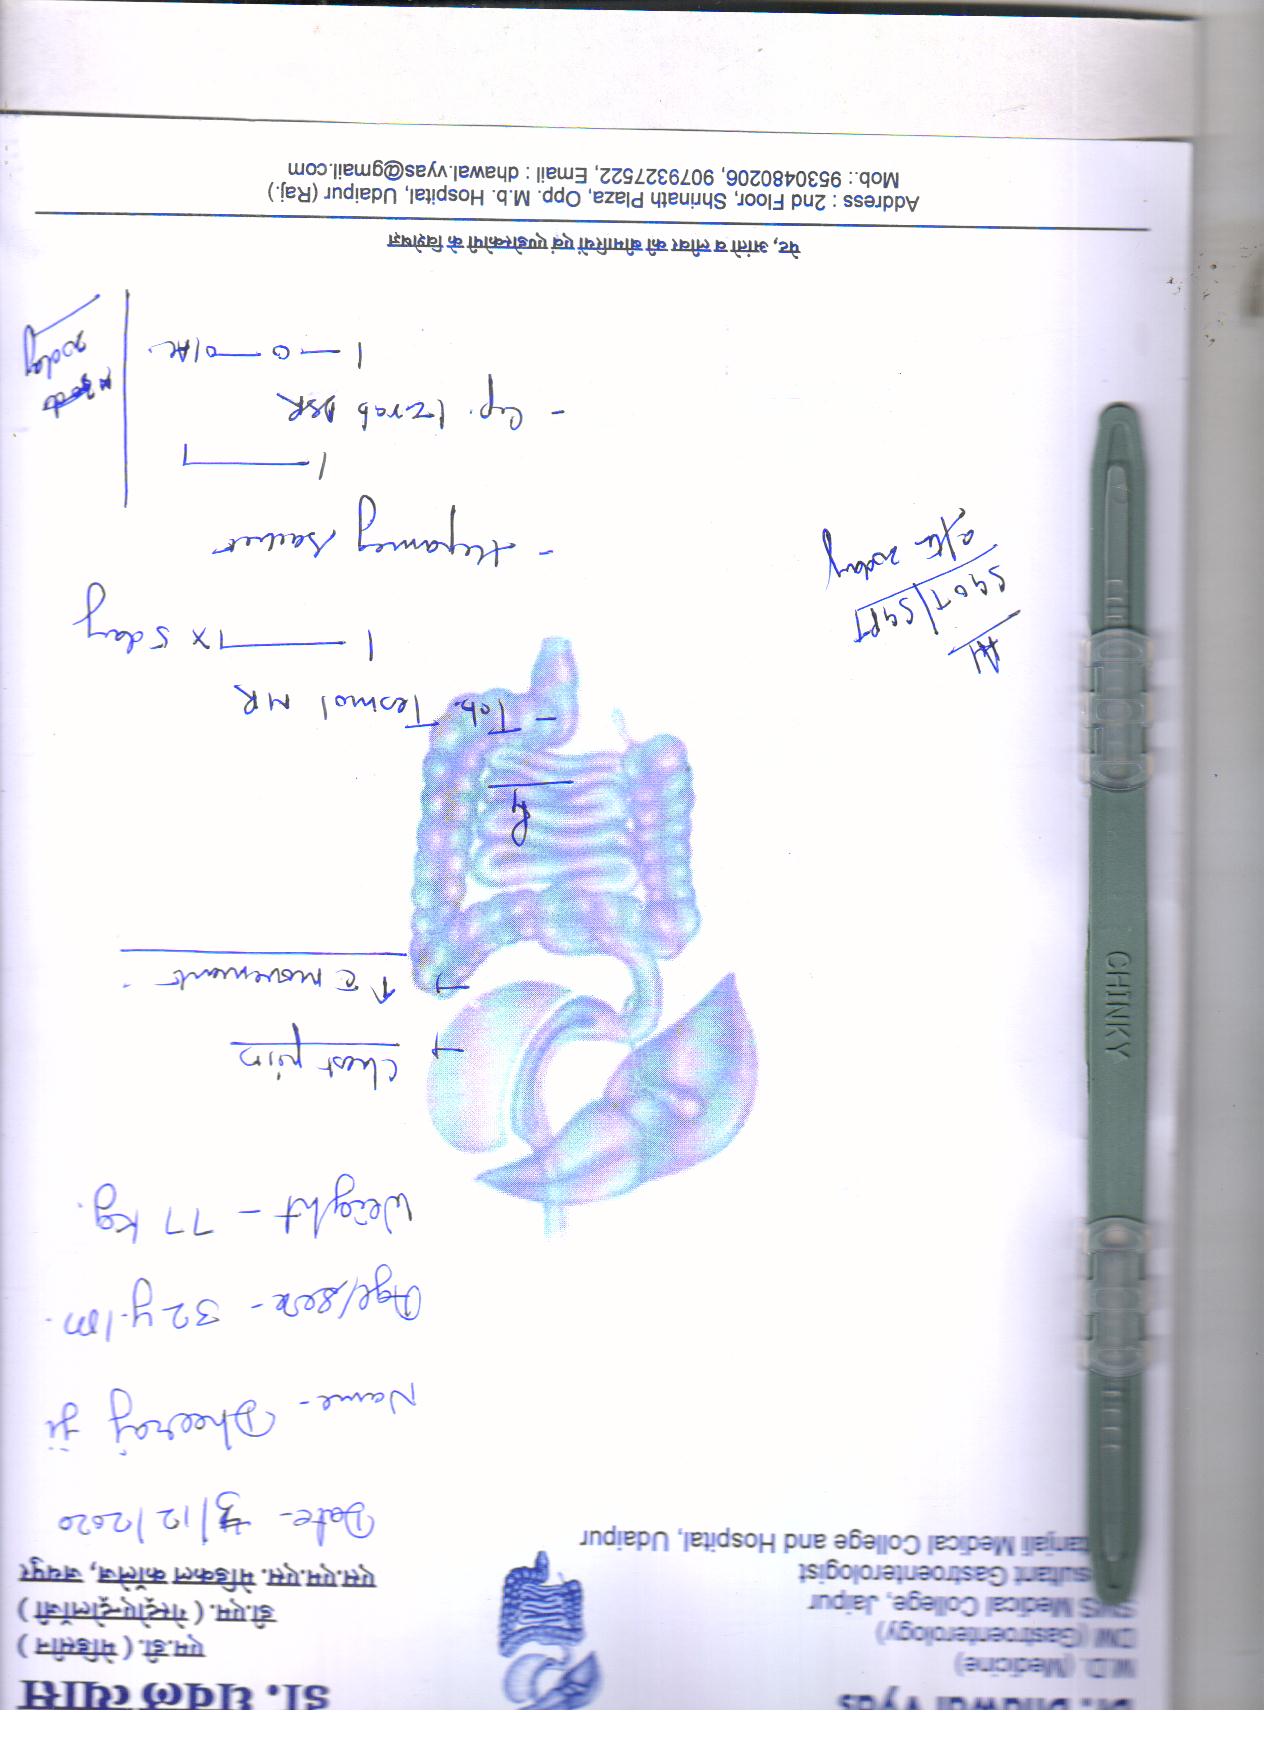 Dr. Dhawal Vyas
M.D. (Medicine)
DM (Gastroenterology)
SMS Medical College, Jaipur
sultant Gastroenterologist
tanjali Medical College and Hospital, Udaipur
डॉ. धवल व्यास
एम.डी. ( मेडिसीन )
डी.एम. ( गेस्ट्रोएन्ट्रोलॉजी )
एस.एम.एस. मेडिकल कॉलेज, जयपुर
Date- 3/12/2020
Name- Dheeraj ji
Age/sex- 32 y./m.
Weight - 77 kg.
Chest pain
↑ c movement
Rx
- Tab. Tesmol MR
1 — 1 x 5 day
- Hepameg
1 — 1
- Cap. Izrab DSR
1 — 0 — 0/AC
20 day
Av
SGOT/SGPT
after 20 day
पेट, आंतो व लीवर की बीमारियों एवं एण्डोस्कोपी के विशेषज्ञ
Address : 2nd Floor, Shrinath Plaza, Opp. M.b. Hospital, Udaipur (Raj.)
Mob.: 9530480206, 9079327522, Email : dhawal.vyas@gmail.com
CHINKY